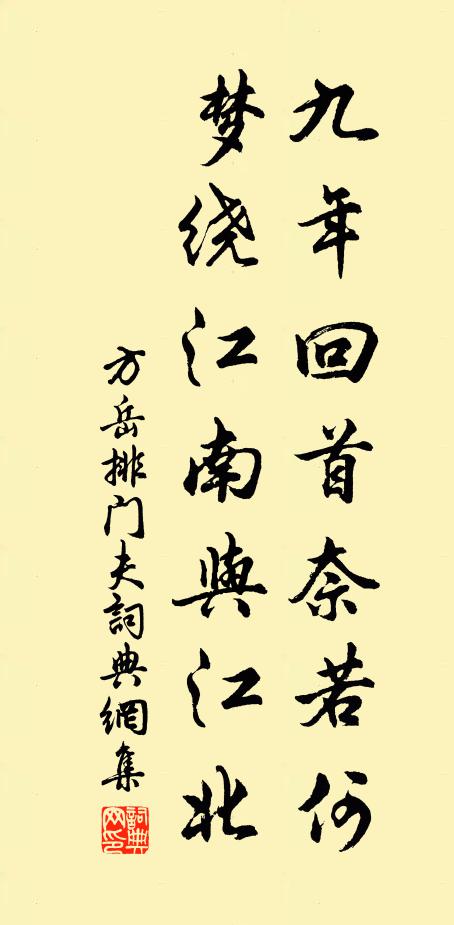 九年回首奈若何
梦绕江南與江北
方岳排门夫詞典網集
詞典网印